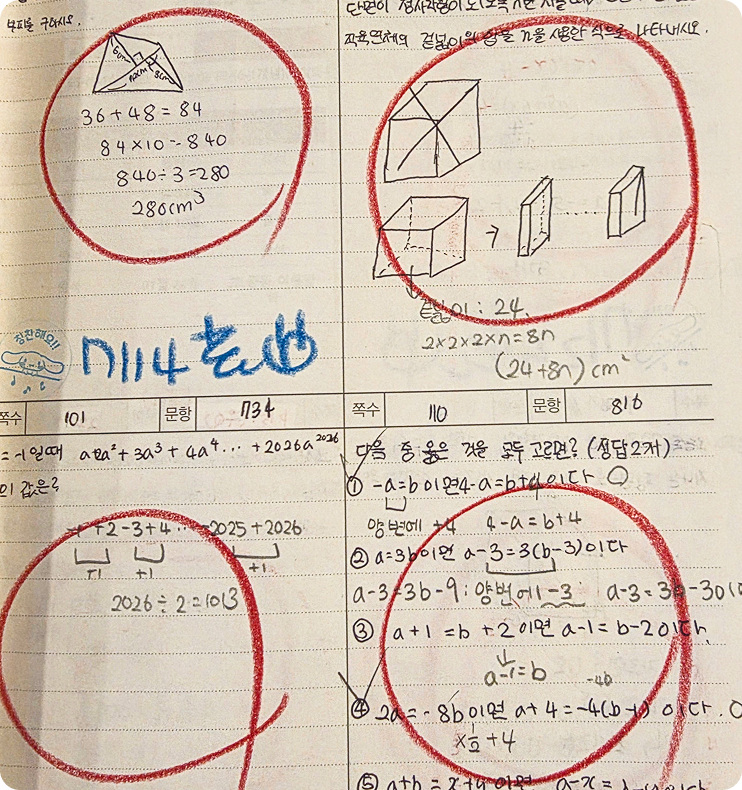 부피를 구하시오.
6cm
12cm
8cm
36+48=84
84×10=840
840÷3=280
280cm³
직육면체의 겉넓이의 합을 n을 사용한 식으로 나타내시오.
겉넓이: 24.
2×2×2×n=8n
(24+8n)cm²
칭찬해요!!
쪽수 101 문항 734
=-1일때 a+2a²+3a³+4a⁴...+2026a²⁰²⁶
의 값은?
-1+2-3+4...-2025+2026
+1 +1 +1
2026÷2=1013
쪽수 110 문항 816
다음 중 옳은 것을 모두 고르면? (정답 2개)
① -a=b이면 4-a=b+4이다 ○
양변에 +4 4-a=b+4
② a=3b이면 a-3=3(b-3)이다
a-3=3b-9: 양변에 -3: a-3=3b-3이다
③ a+1=b+2이면 a-1=b-2이다.
a-1=b
④ 2a=-8b이면 a+4=-4(b-1)이다. ○
-4b
×½+4
⑤ a+b=x+y이면 a-x=